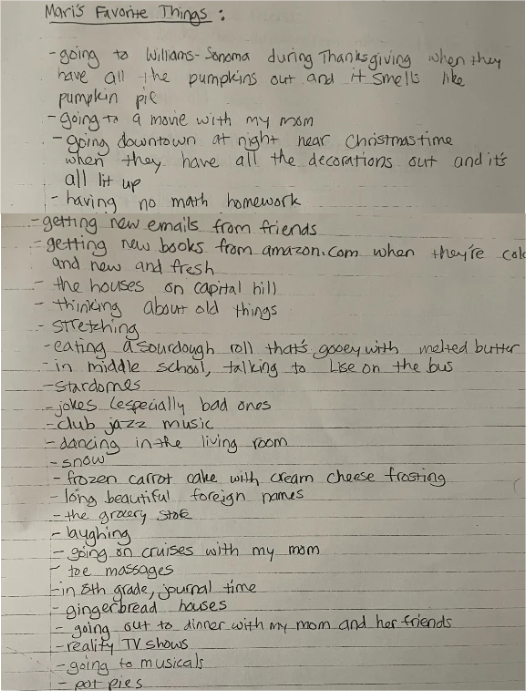 Mari's Favorite Things :
- going to Williams-Sonoma during Thanksgiving when they
have all the pumpkins out and it smells like
pumpkin pie
- going to a movie with my mom
- going downtown at night near Christmastime
when they have all the decorations out and it's
all lit up
- having no math homework
- getting new emails from friends
- getting new books from amazon.com when they're cold
and new and fresh
- the houses on capital hill
- thinking about old things
- stretching
- eating a sourdough roll that's gooey with melted butter
- in middle school, talking to Lise on the bus
- stardomes
- jokes (especially bad ones
- club jazz music
- dancing in the living room
- snow
- frozen carrot cake with cream cheese frosting
- long beautiful foreign names
- the grocery store
- laughing
- going on cruises with my mom
- toe massages
- in 8th grade, journal time
- gingerbread houses
- going out to dinner with my mom and her friends
- reality TV shows
- going to musicals
- pot pies